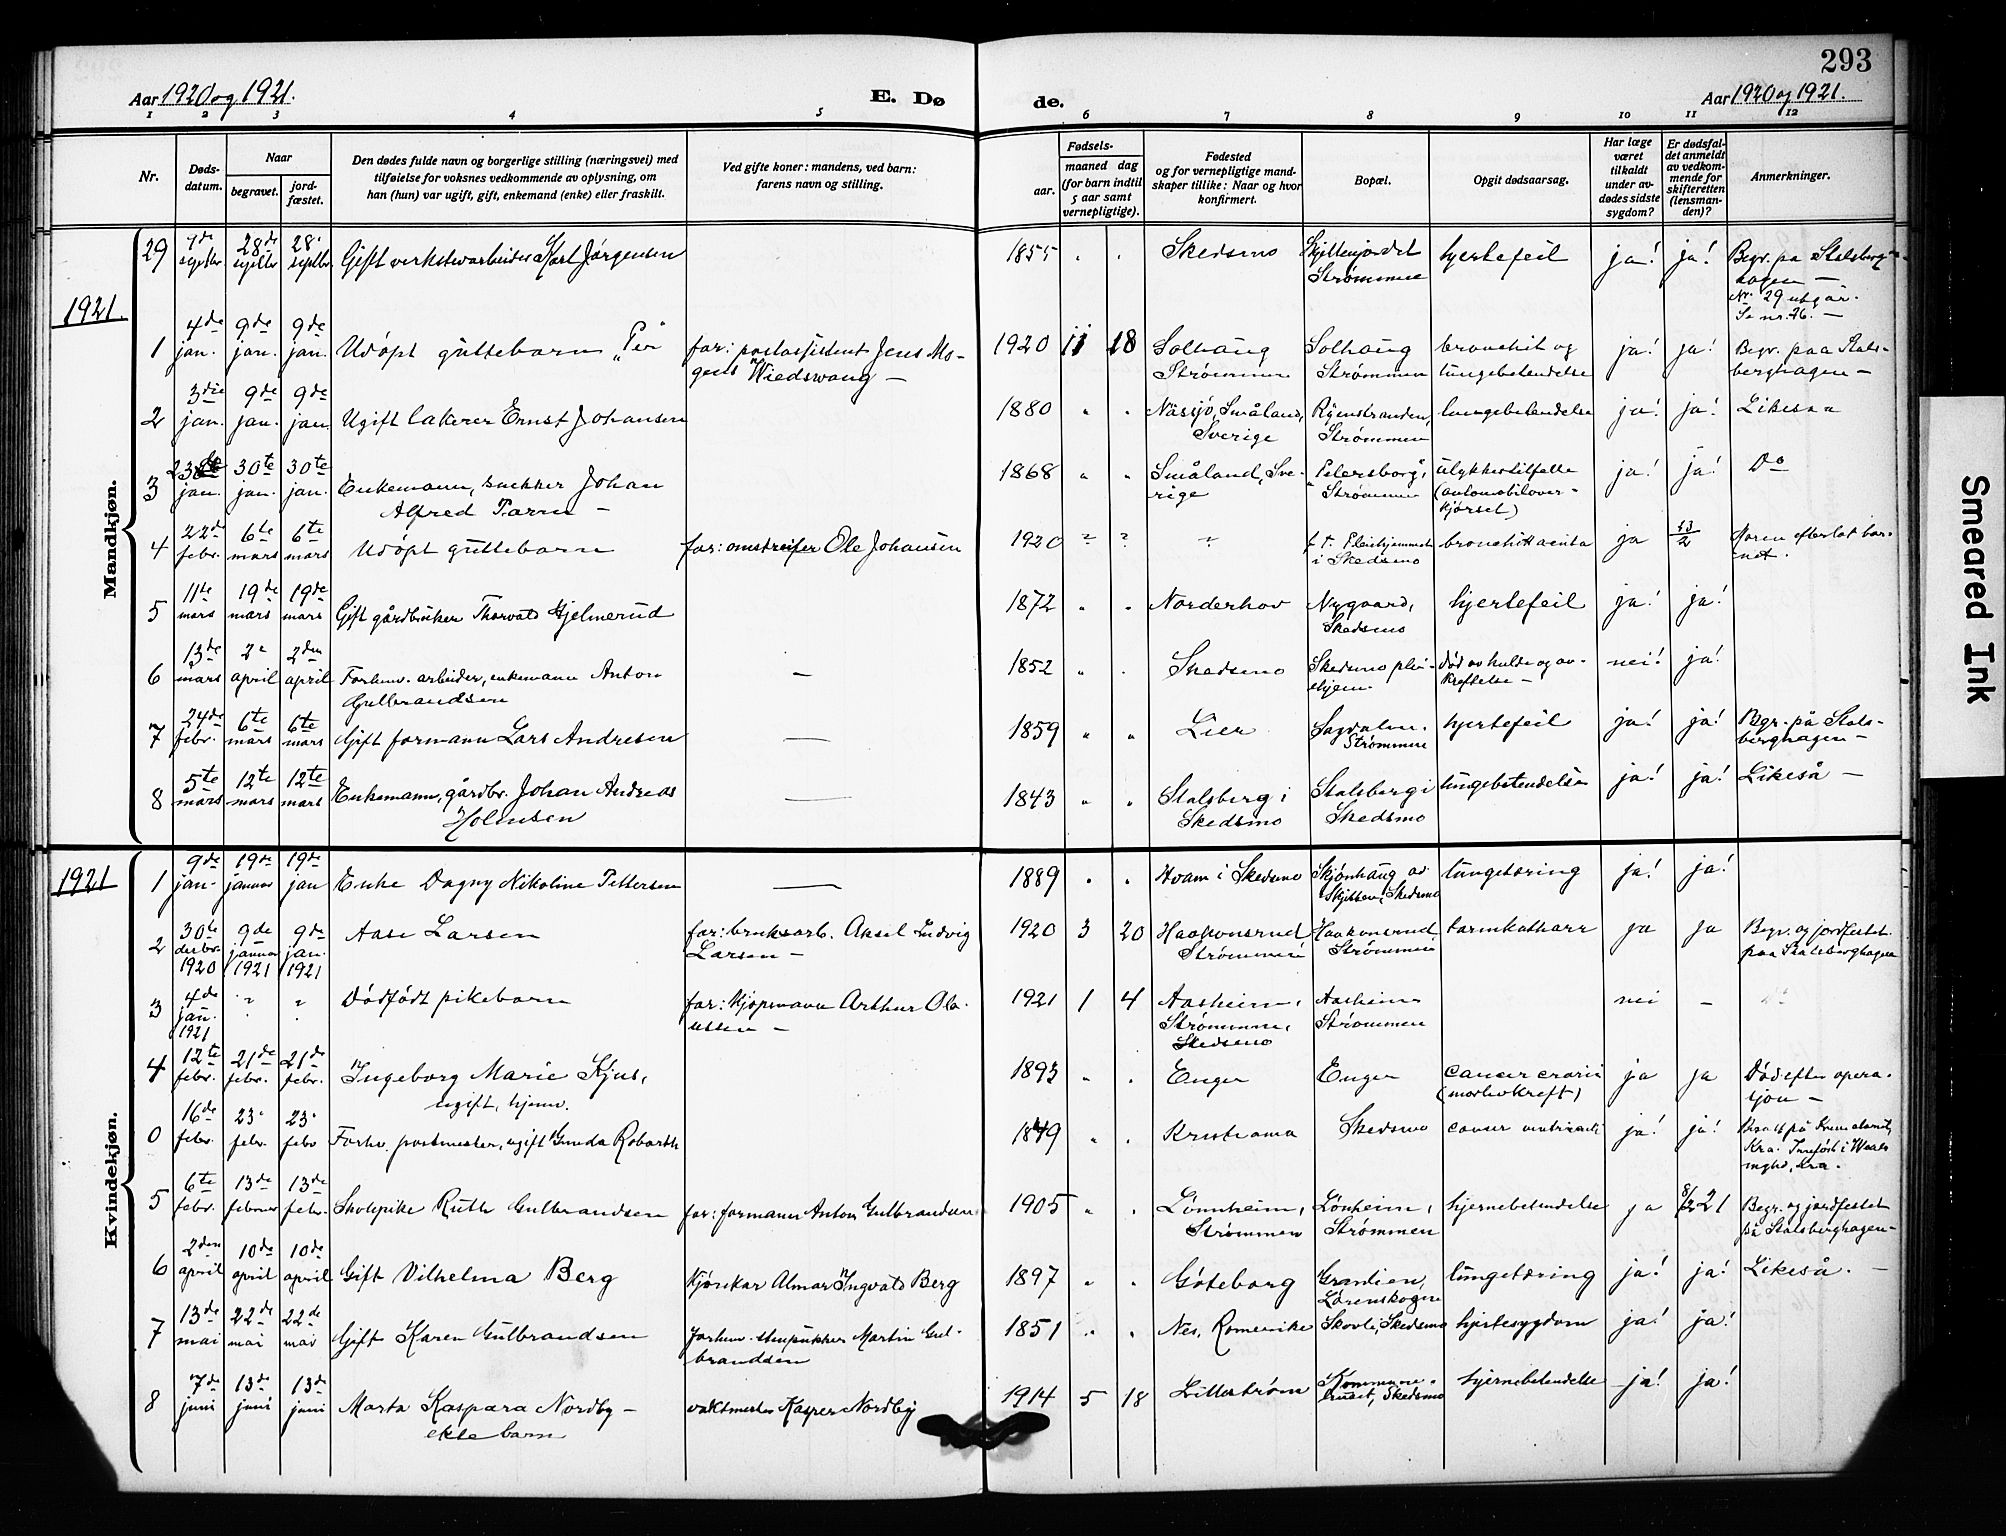 293
Aar 1920 og 1921.
E. Dø
de.
Aar 1920 og 1921.
1 2 3 4 5 6 7 8 9 10 11 12
Nr.
Døds-
datum.
Naar
begravet.
jord-
fæstet.
Den dødes fulde navn og borgerlige stilling (næringsvei) med
tilføielse for voksnes vedkommende av oplysning, om
han (hun) var ugift, gift, enkemand (enke) eller fraskilt.
Ved gifte koner: mandens, ved barn:
farens navn og stilling.
Fødsels-
aar.
maaned dag
(for barn indtil
5 aar samt
vernepligtige).
Fødested
og for vernepligtige mand-
skaper tillike: Naar og hvor
konfirmert.
Bopæl.
Opgit dødsaarsag.
Har læge
været
tilkaldt
under av-
dødes sidste
sygdom?
Er dødsfal-
det anmeldt
av vedkom-
mende for
skifteretten
(lensman-
den)?
Anmerkninger.
Mandkjøn.
29 septbr. 28de septbr 28. septbr. Gift verkstwarbeider Karl Jørgensen 1855 " . Skedsmo Skjettenjordet Strømmen hjertefeil ja! ja! Begr. pa Stalsberghagen —
Nr. 29 utgår.
Se nr. 26. —
1921.
1 4de jan. 9de jan. 9de jan. Udöpt guttebarn "Per" far: postassistent Jens Mogens Wiedswang — 1920 11 18 Solhaug Strømmen Solhaug Strømmen bronchit og lungebetendelse ja! ja! Begr. paa Stalsberghagen —
2 3die jan. 9de jan. 9de jan. Ugift lakerer Ernst Johansen 1880 " . Nässjö, Småland, Sverige Strømmen lungebetendelse ja! ja! Likesaa
3 jan. 30te jan. 30te jan. Enkemann, snekker Johan Alfred Tarn — 1868 " " Småland, Sverige "Petersborg", Strømmen ulykkestilfelle (automobiloverkjørsel) ja! ja! Do
4 22de febr. 6te mars 6te mars Udöpt guttebarn far: omstreifer Ole Johansen 1920 ? ? ? f.t. Pleiehjemmet i Skedsmo bronchitt acuta ja 23/2 Moren efterlot barnet.
5 11te mars 19de mars 19de mars Gift gårdbruker Thorvald Hjelmerud 1872 " . Norderhov Nygaard, Skedsmo hjertefeil ja! ja!
6 13de mars 2. april 2den april Forhenv. arbeider, enkemann Anton Gulbrandsen — 1852 " . Skedsmo Skedsmo pleiehjem død av hulde og avkreftelse — nei! ja!
7 24de febr. 6te mars 6te mars Gift formann Lars Andresen — 1859 " " Lier Sagdalen. Strømmen hjertefeil ja! ja! Begr. på Stalsberghagen —
8 5te mars 12te mars 12te mars Enkemann, gårdbr. Johan Andreas Holmsen — 1843 " " Stalsberg i Skedsmo Stalsberg i Skedsmo lungebetendelse ja! ja! Likeså —
Kvindekjøn.
1921
1 9de jan. 19de januar 19de jan Enke Dagny Nikoline Pettersen — 1889 " . Hvam i Skedsmo Skjønhaug av Skjetten, Skedsmo lungetæring ja! ja!
2 30te desbr. 1920 9de januar 1921 9de jan. 1921 Aase Larsen far: bruksarb. Aksel Ludvig Larsen — 1920 3 20 Haakonsrud Strømmen Haakonsrud Strømmen tarmkatharr ja ja Begr. og jordfestet paa Stalsberghagen
3 4de jan. 1921 " " Dödfödt pikebarn far: kjøpmann Arthur Olaussen — 1921 1 4 Aasheim, Strømmen, Skedsmo Aasheim Strømmen nei — Do
4 12te febr. 21de febr. 21de febr. Ingeborg Marie Kjus, ugift, hjemv. 1893 " . Enger Enger cancer (morlivkreft) ja ja Död efter operasjon —
0 16de febr. 23. febr. 23. febr Forhv. postmester, ugift Gunda Robarth 1849 " . Kristiania Skedsmo cancer ventriculi ja! ja! på Krematoriet, Kra. Innført i menighet, Kra.
5 6te febr. 13de februar 13de febr. Skolepike Ruth Gulbrandsen far: formann Anton Gulbrandsen 1905 " . Lønnheim, Strømmen Lønheim, Strømmen hjernebetendelse ja 8/2 21 Begr. og jordfestet på Stalsberghagen —
6 2den april 10de april 10de april Gift Vilhelma Berg kjørekar Almar Ingvald Berg 1897 " . Göteborg Grandlien, Lørenskogen lungetæring ja! ja! Likeså. —
7 13de mai 22de mai 22de mai Gift Karen Gulbrandsen forhenv. stenpukker Martin Gulbrandsen 1851 " . Nes, Romerike Skovli, Skedsmo hjertesygdom ja! ja!
8 7de juni 13de juni 13de juni Marta Kaspara Nordby — ekte barn vaktmester Kasper Nordby 1914 5 18 Lillestrøm Skedsmo hjernebetendelse ja! ja!
Smeared Ink